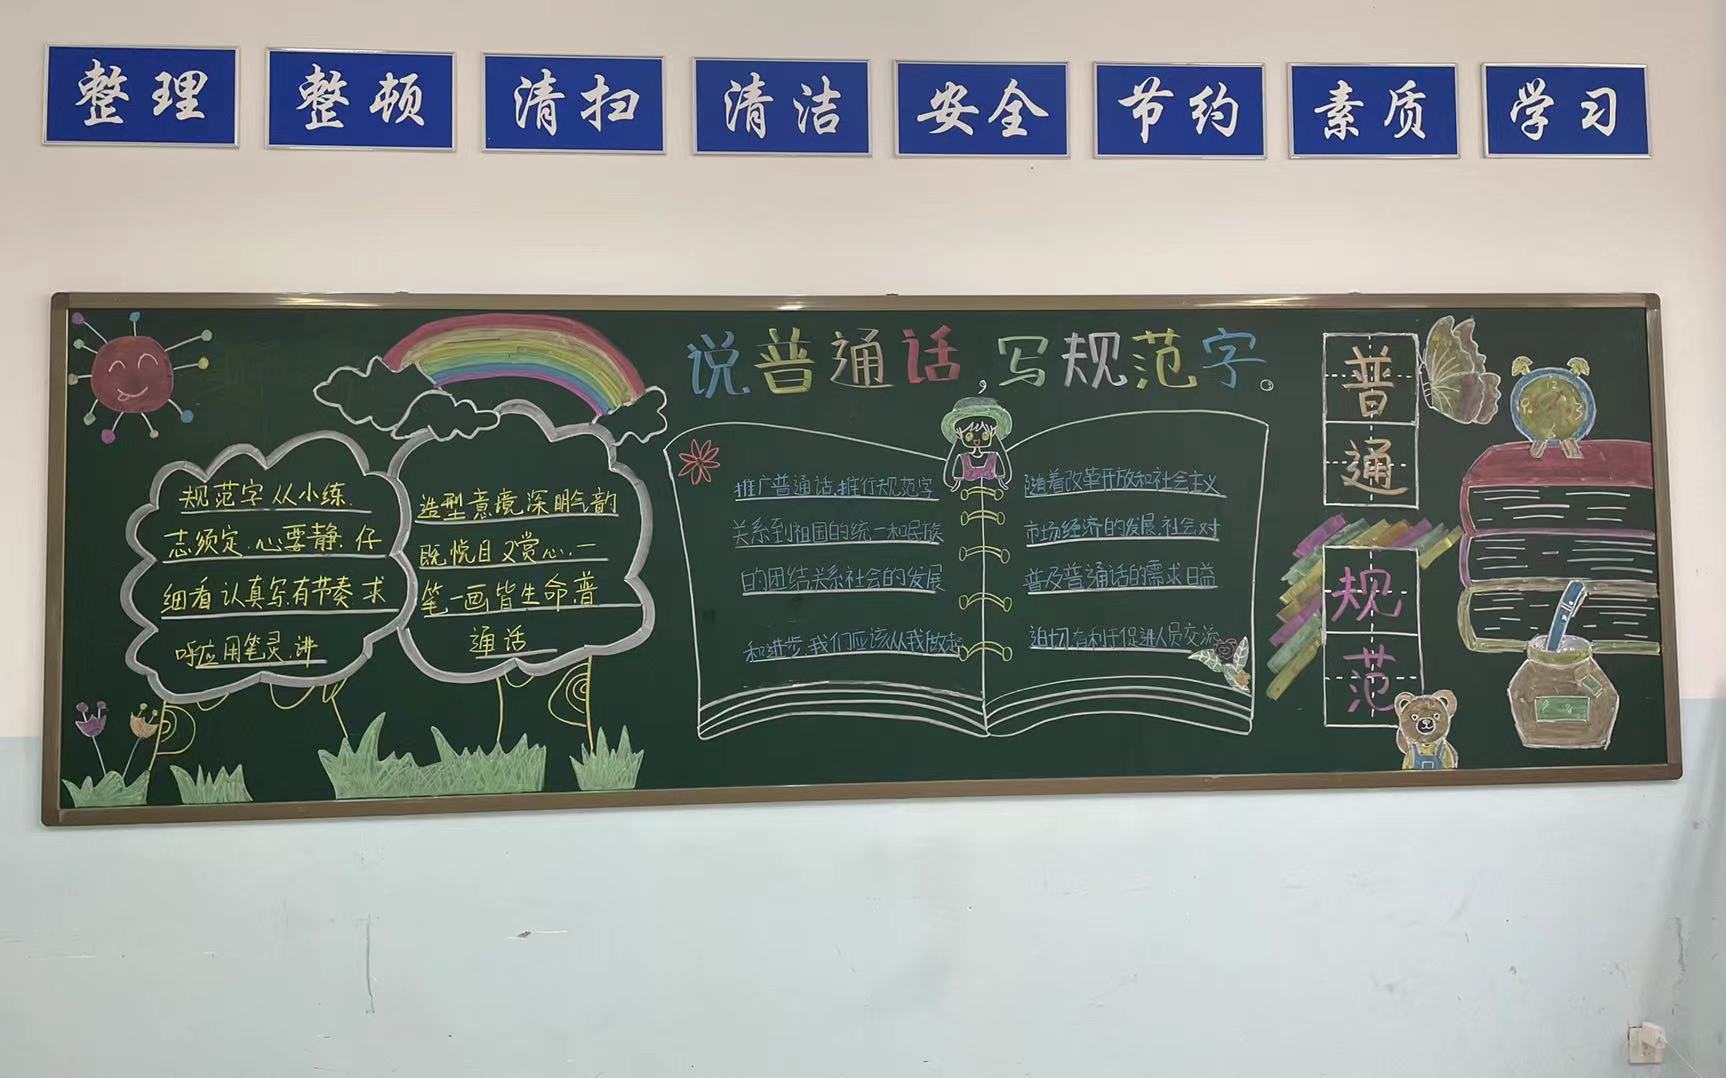 整理
整顿
清扫
清洁
安全
节约
素质
学习
说普通话,写规范字。
规范字从小练.
志须定.心要静.仔
细看认真写.有节奏.求
呼应用笔灵.讲
造型意境深.明气韵
既悦目又赏心.一
笔一画皆生命.普
通话
推广普通话.推行规范字
关系到祖国的统一和民族
的团结关系社会的发展
和进步.我们应该从我做起
随着改革开放和社会主义
市场经济的发展.社会对
普及普通话的需求日益
迫切.有利于促进人员交流
普
通
规
范